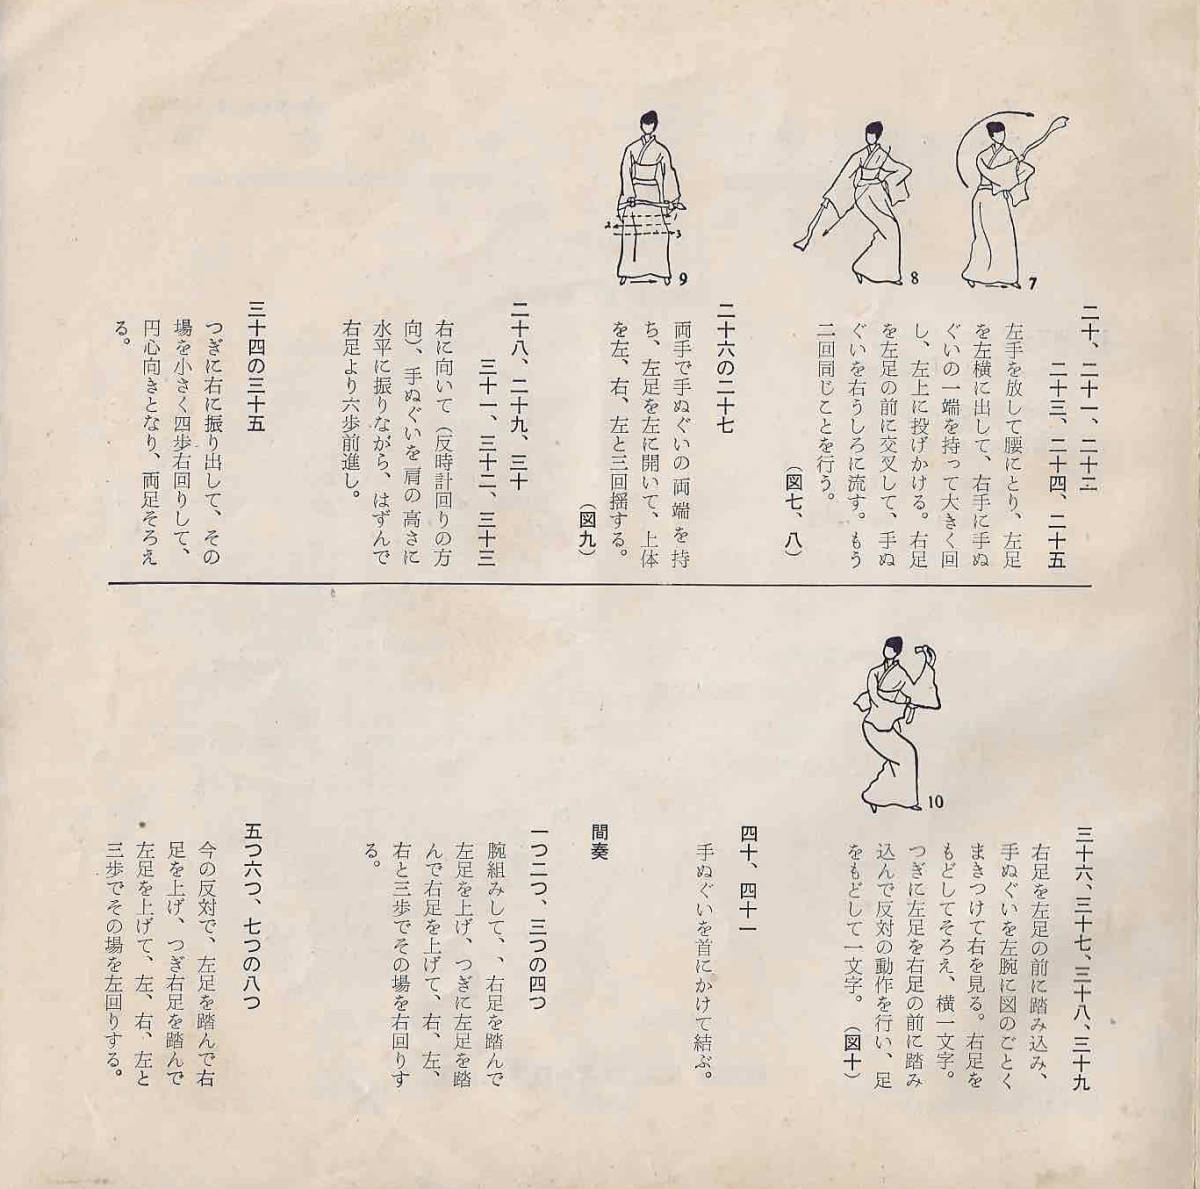 7
8
二十、二十一、二十二
二十三、二十四、二十五
左手を放して腰にとり、左足
を左横に出して、右手に手ぬ
ぐいの一端を持って大きく回
し、左上に投げかける。右足
を左足の前に交叉して、手ぬ
ぐいを右うしろに流す。もう
二回同じことを行う。
（図七、八）
9
1
2
3
二十六の二十七
両手で手ぬぐいの両端を持
ち、左足を左に開いて、上体
を左、右、左と三回揺する。
（図九）
二十八、二十九、三十
三十一、三十二、三十三
右に向いて（反時計回りの方
向）、手ぬぐいを肩の高さに
水平に振りながら、はずんで
右足より六歩前進し。
三十四の三十五
つぎに右に振り出して、その
場を小さく四歩右回りして、
円心向きとなり、両足そろえ
る。
10
三十六、三十七、三十八、三十九
右足を左足の前に踏み込み、
手ぬぐいを左腕に図のごとく
まきつけて右を見る。右足を
もどしてそろえ、横一文字。
つぎに左足を右足の前に踏み
込んで反対の動作を行い、足
をもどして一文字。（図十）
四十、四十一
手ぬぐいを首にかけて結ぶ。
間奏
一つ二つ、三つの四つ
腕組みして、、右足を踏んで
左足を上げ、つぎに左足を踏
んで右足を上げて、右、左、
右と三歩でその場を右回りす
る。
五つ六つ、七つの八つ
今の反対で、左足を踏んで右
足を上げ、つぎ右足を踏んで
左足を上げて、左、右、左と
三歩でその場を左回りする。